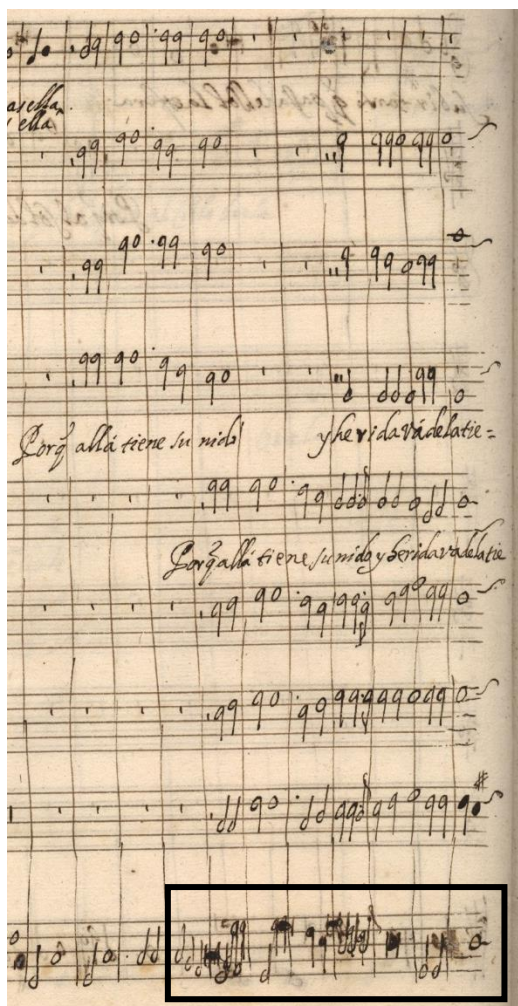 as ella.
s ella
Porq̃ allá tiene su nido y herida vá de la tie=
Porq̃ allá tiene su nido y herida vá de la tie